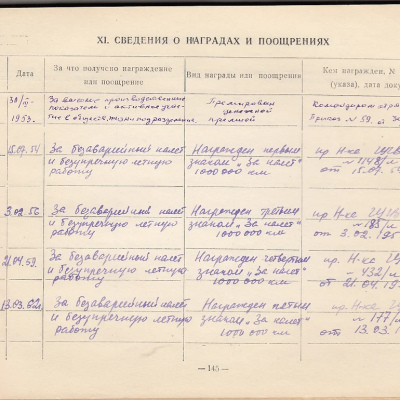 XI. СВЕДЕНИЯ О НАГРАДАХ И ПООЩРЕНИЯХ
Дата
За что получено награждение или поощрение
Вид награды или поощрения
Кем награжден, N
(указа), дата доку
1953.
За высокие производственные показатели и активное участие в обществ. жизни подразделения,
Премирован денежной премией
Приказ № 59.
.07.54
За безаварийный налет и безупречную летную работу
Награжден первым знаком „За налет" 1000000 км
пр. Н-ка ГУГВФ
№ 1148/л
от 15.07.54
3.02.56
За безаварийный налет и безупречную летную работу
Награжден третьим знаком „За налет" 1000000 км
пр Н-ка ГУГВФ
№ 185/л
от 3.02.195
21.04.59.
За безаварийный налет и безупречную летную работу
Награжден четвертым знаком „За налет" 1000000 км
пр. Н-ка ГУ
№ 432/л
от 21.04.19
13.03.62г
За безаварийный налет и безупречную летную работу
Награжден пятым знаком „За налет" 1000000 км
пр. Н-ка ГУ
№ 177/л
от 13.03.1
—145—